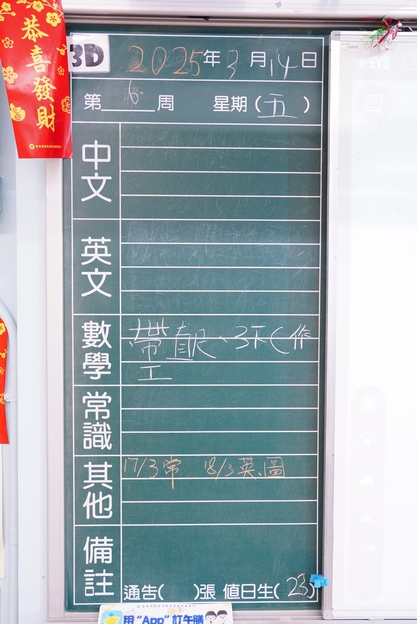 恭喜發財
3D 2025年3月14日
第 周 星期(五)
中文
英文
數學 帶直尺、3下C作
工
常識
其他 17/3常 18/3英、圖
備註
通告( )張 值日生(23)
用"App"訂午膳